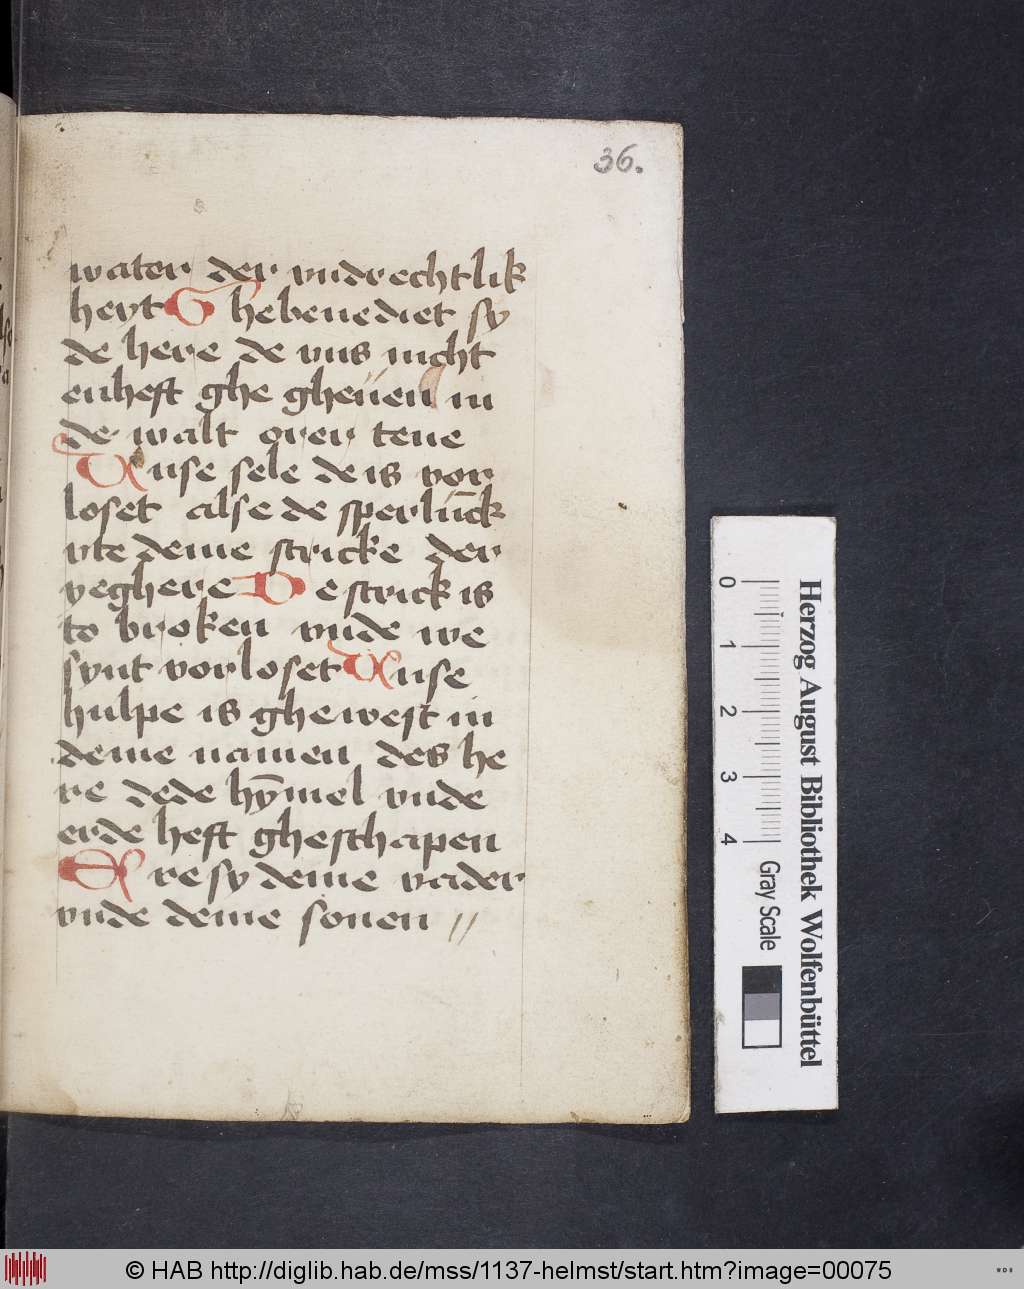 36.
water der vndrechtlik
heyt Ghebenediet sy
de here de vns nicht
enheft ghe gheuen in
de walt orer tene
Vnse sele de is vor
loset alse de sperlinck
vte deme stricke der
yeghere De strick is
to broken vnde we
synt vorloset Vnse
hulpe is ghewest in
deme namen des he
re dede hȳmel vnde
erde heft gheschapen
Ere sy deme vader
vnde deme sonen //
0 1 2 3 4
Gray Scale
Herzog August Bibliothek Wolfenbüttel
© HAB http://diglib.hab.de/mss/1137-helmst/start.htm?image=00075